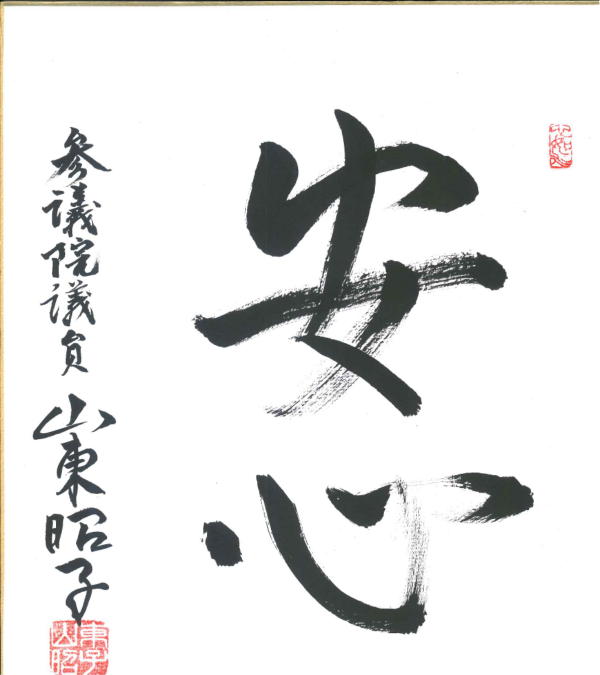 安心
参議院議員 山東昭子
山東昭子